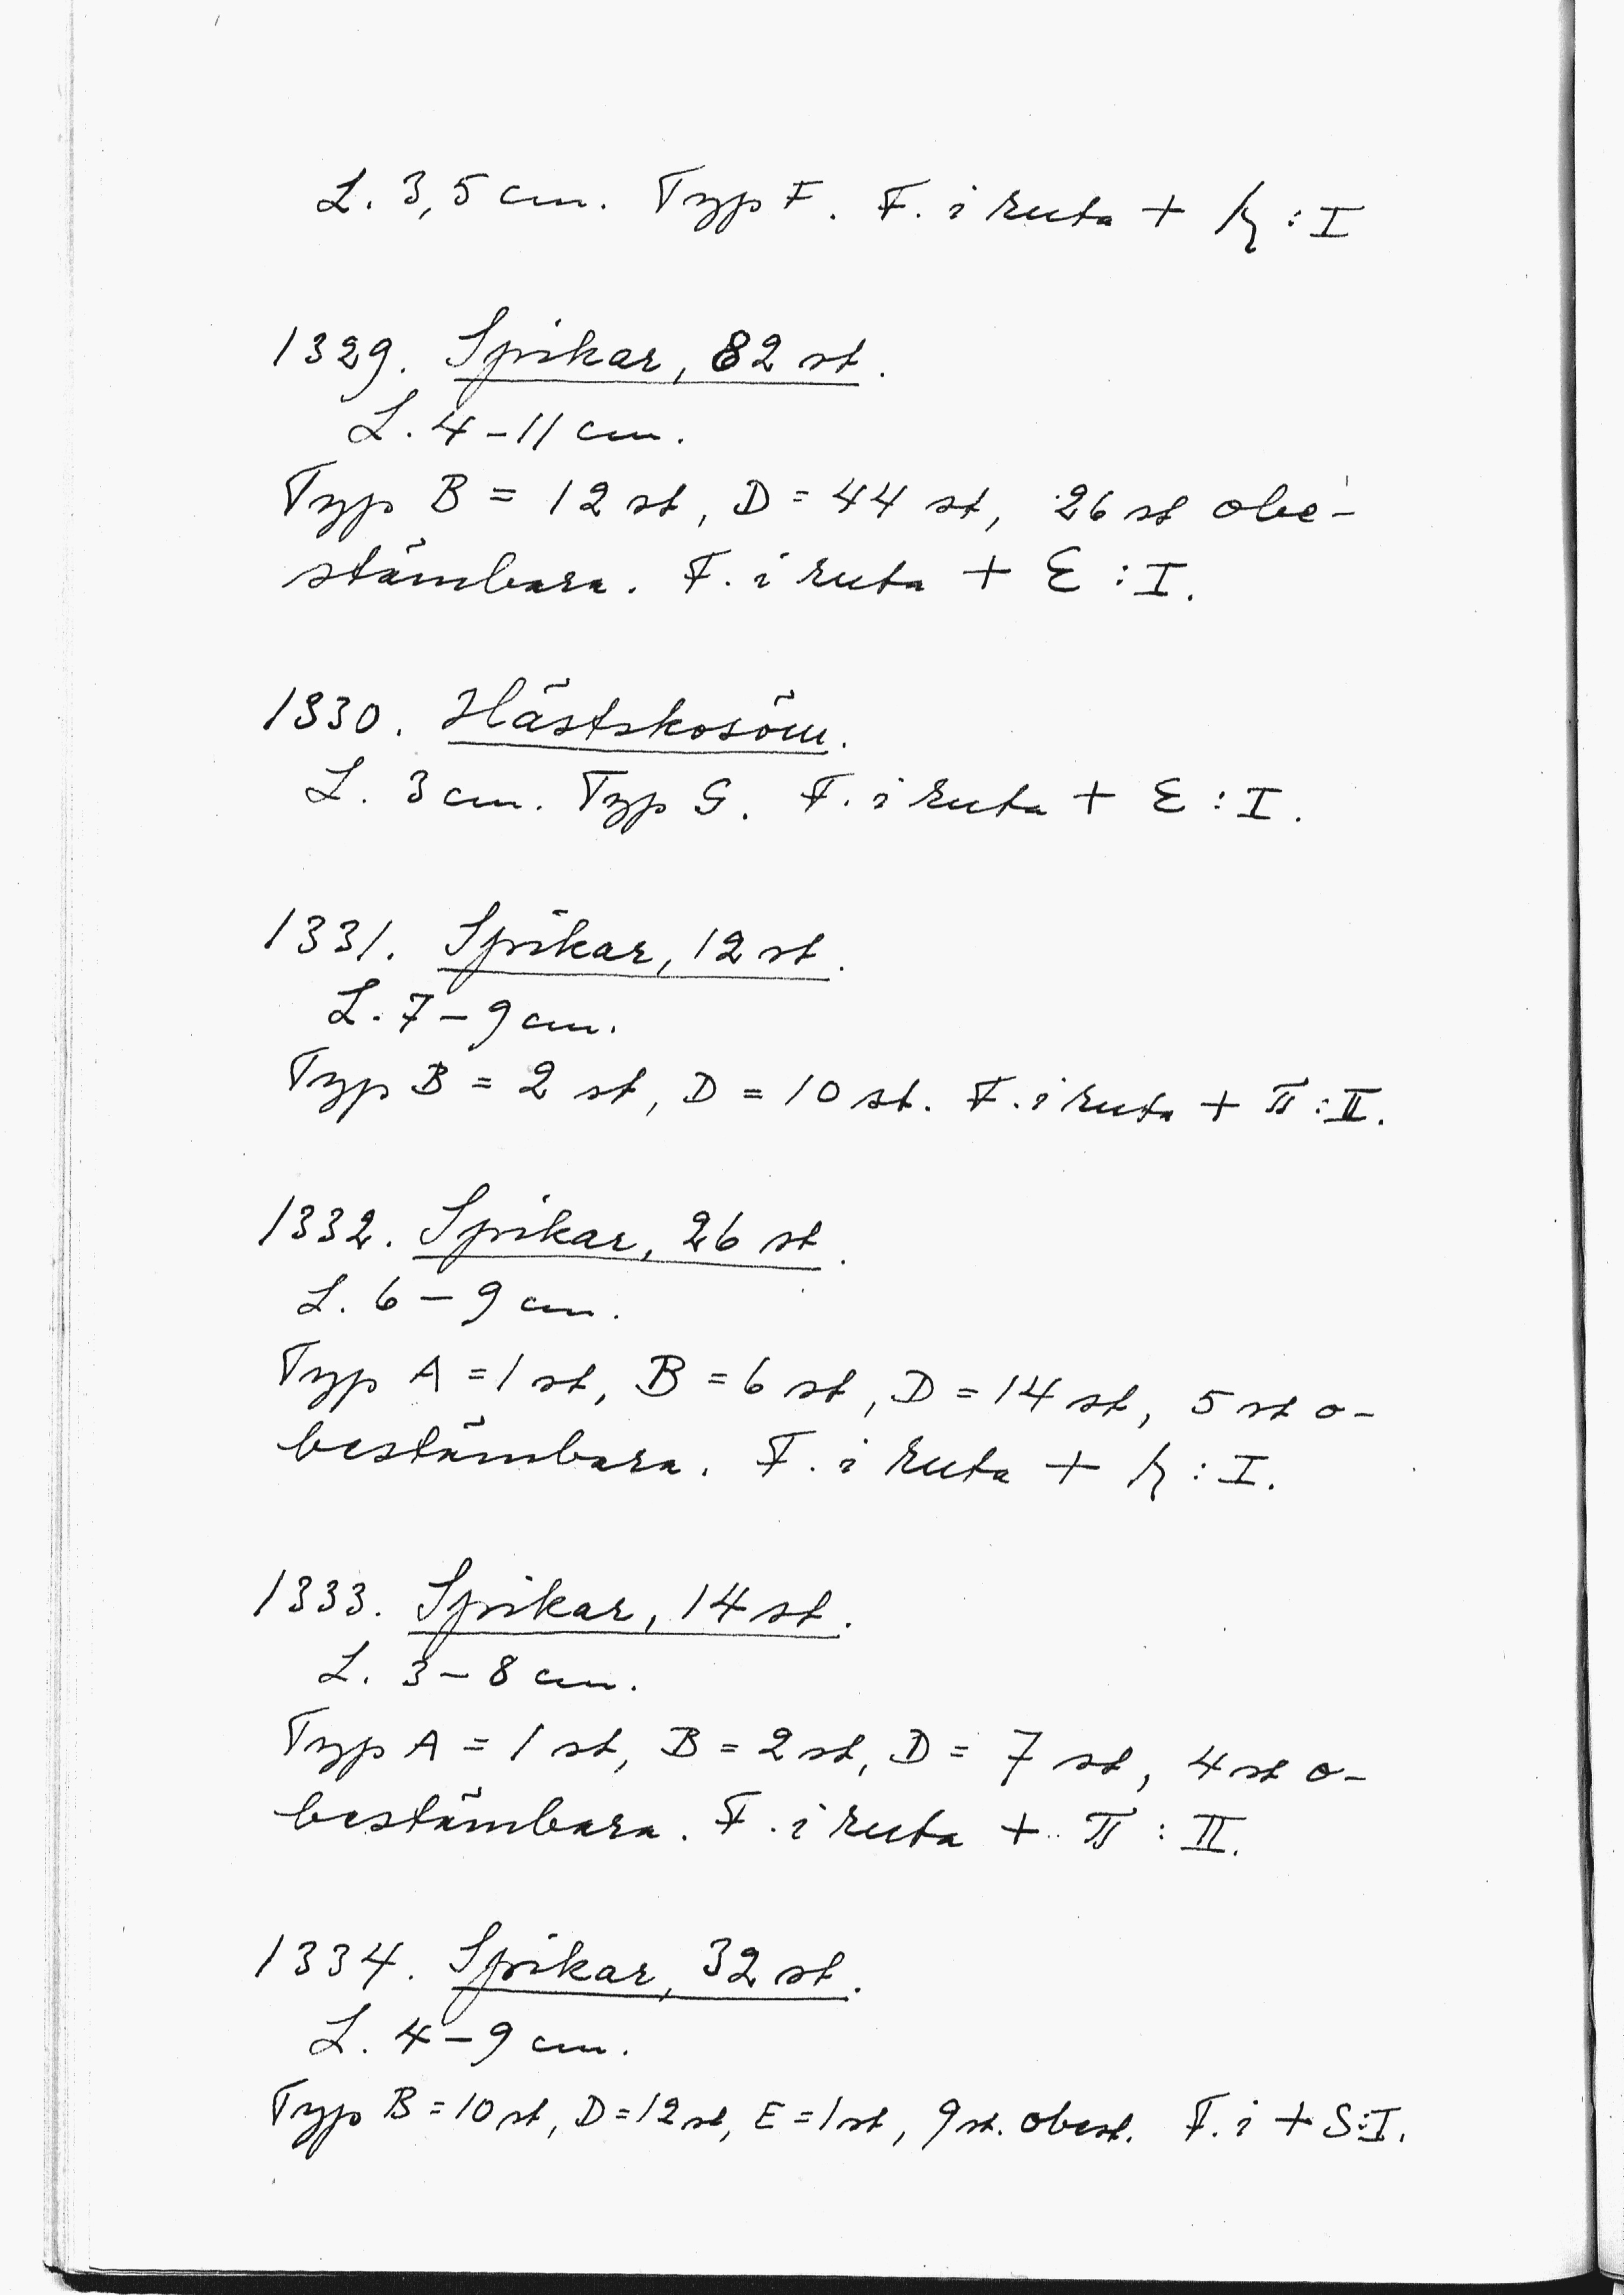 L. 3,5 cm. Typ F. F. i ruta + :I
1329. Spikar, 82 st.
L. 4-11 cm.
Typ B = 12 st, D = 44 st, 26 st obe-
stämbara. F. i ruta + E : I.
1330. Hästskosöm.
L. 3 cm. Typ G. F. i ruta + E : I.
1331. Spikar, 12 st.
L. 7-9 cm.
Typ B = 2 st, D = 10 st. F. i ruta + π : II.
1332. Spikar, 26 st.
L. 6-9 cm.
Typ A = 1 st, B = 6 st, D = 14 st, 5 st o-
bestämbara. F. i ruta + : I.
1333. Spikar, 14 st.
L. 3-8 cm.
Typ A = 1 st, B = 2 st, D = 7 st, 4 st o-
bestämbara. F. i ruta + π : II.
1334. Spikar, 32 st.
L. 4-9 cm.
Typ B = 10 st, D = 12 st, E = 1 st, 9 st. obest. F. i + S:I.